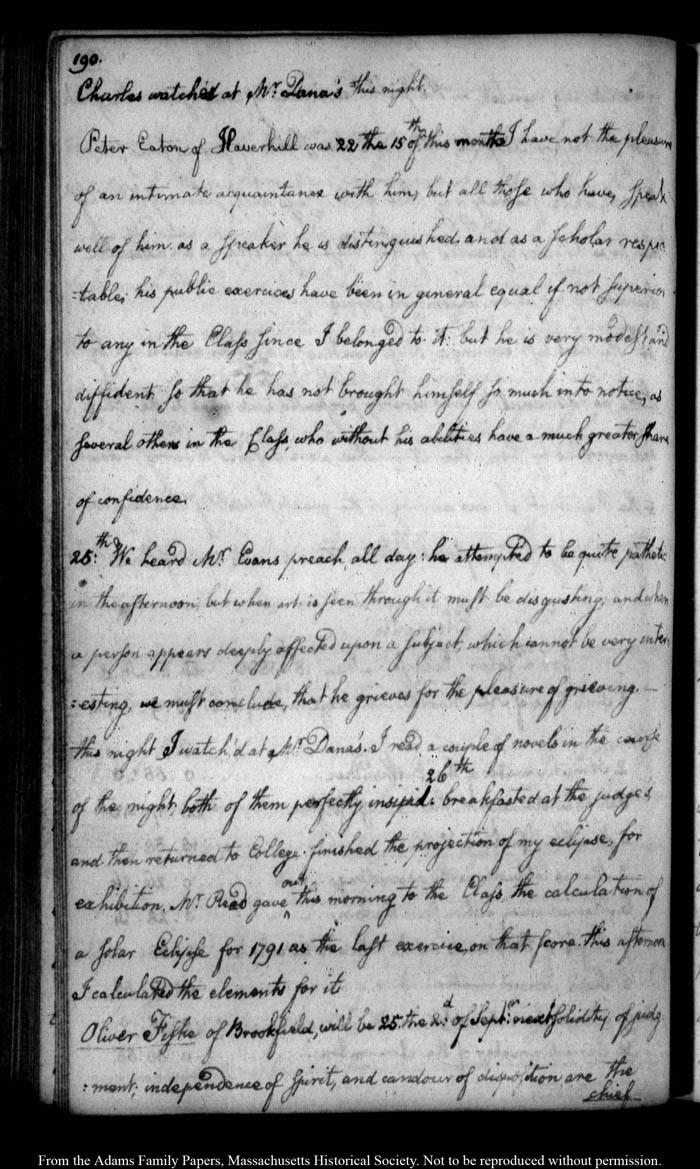 190.
Charles watched at Mr. Dana's this night.
Peter Eaton of Haverhill was 22 the 15th of this month I have not the pleasure
of an intimate acquaintance with him, but all those who have, speak
well of him. as a speaker he is distinguished, and as a scholar respec-
-table; his public exercices have been in general equal if not superior
to any in the Class since I belonged to it: but he is very modest and
diffident so that he has not brought himself so much into notice, as
several others in the Class, who without his abilities have a much greater share
of confidence.
25th: We heard Mr. Evans preach, all day: he attempted to be quite pathetic
in the afternoon, but when art is seen through it must be disgusting; and when
a person appears deeply affected upon a subject, which cannot be very inter-
:esting, we must conclude, that he grieves for the pleasure of grieving. —
this night I watch'd at Mr. Dana's. I read a couple of novels in the course
26th
of the night, both of them perfectly insipid. breakfasted at the judge's
and then returned to College. finished the projection of my eclipse, for
exhibition. Mr. Read gave out this morning to the Class the calculation of
a solar Eclipse for 1791 as the last exercice, on that score. this afternoon
I calculated the elements for it.
Oliver Fiske of Brookfield, will be 25 the 2d: of Septr. next solidity of judg
:ment; independence of spirit, and candour of disposition are the
chief
From the Adams Family Papers, Massachusetts Historical Society. Not to be reproduced without permission.